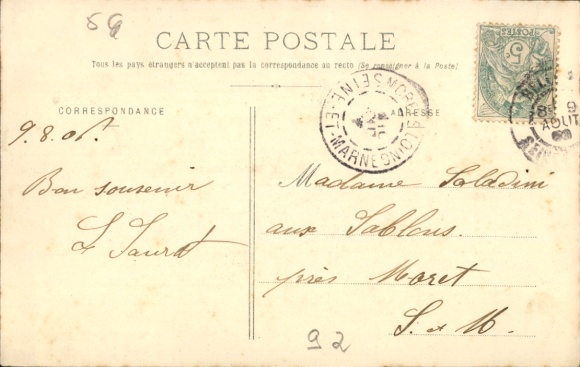 59
CARTE POSTALE
Tous les pays étrangers n'acceptent pas la correspondance au recto (Se renseigner à la Poste)
CORRESPONDANCE
ADRESSE
SEINE-ET-MARNE
5
AOUT
9.8.06.
Bon souvenir
Madame Saladini
aux Sablons.
près Moret
S. et M.
92